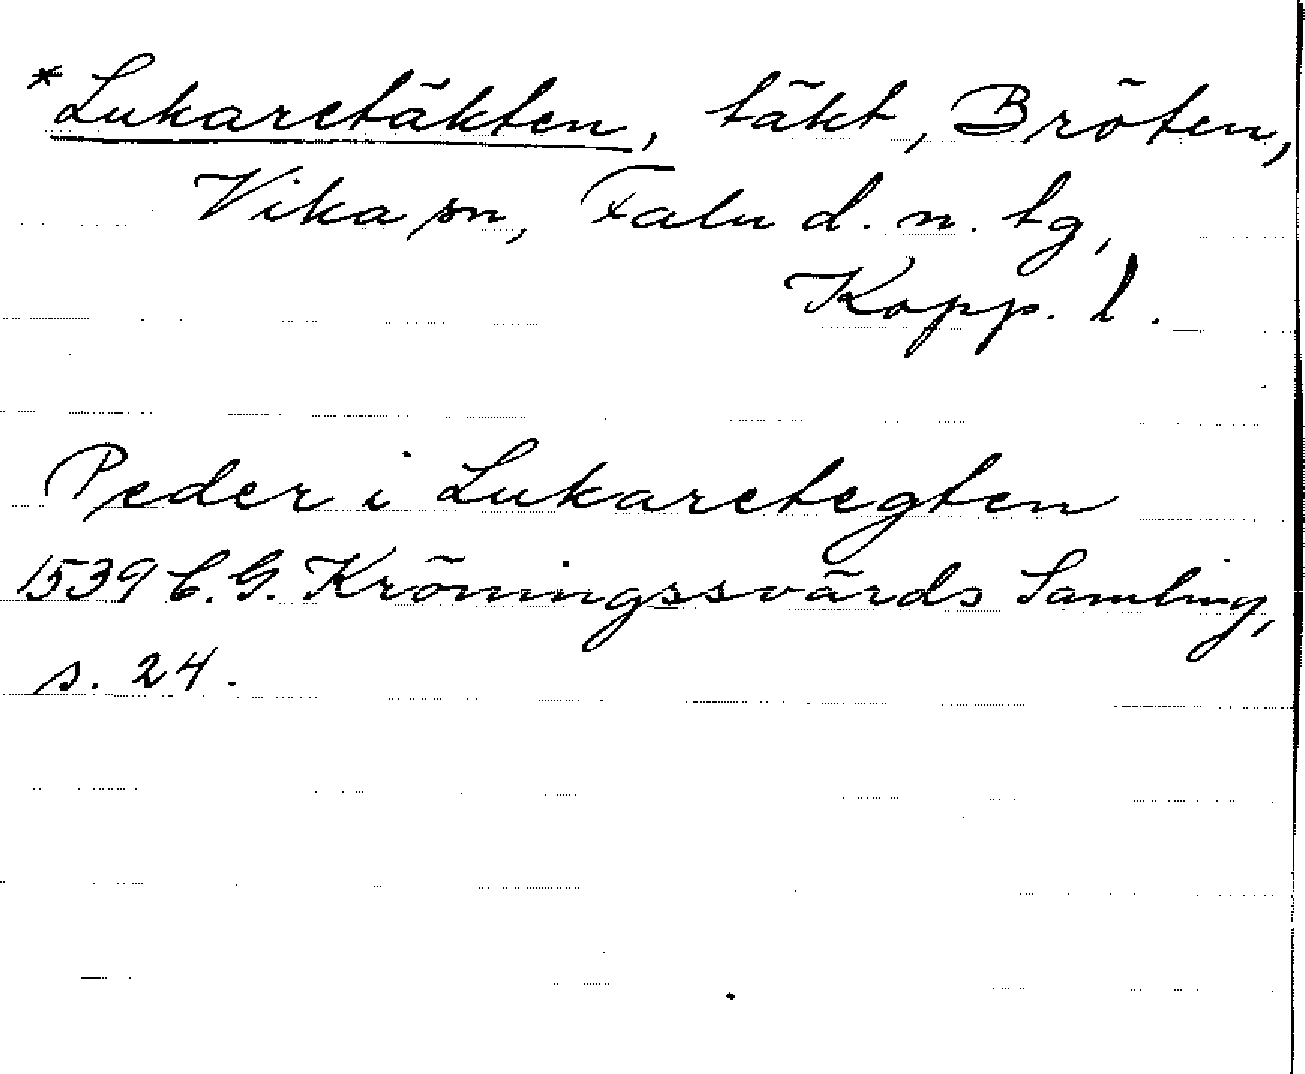 *Lukaretäkten, täkt, Bröten,
Vika sn, Falu d. n. tg,
Kopp. l.
Peder i Lukaretegten
1539 C. G. Kröningssvärds Samling,
s. 24.